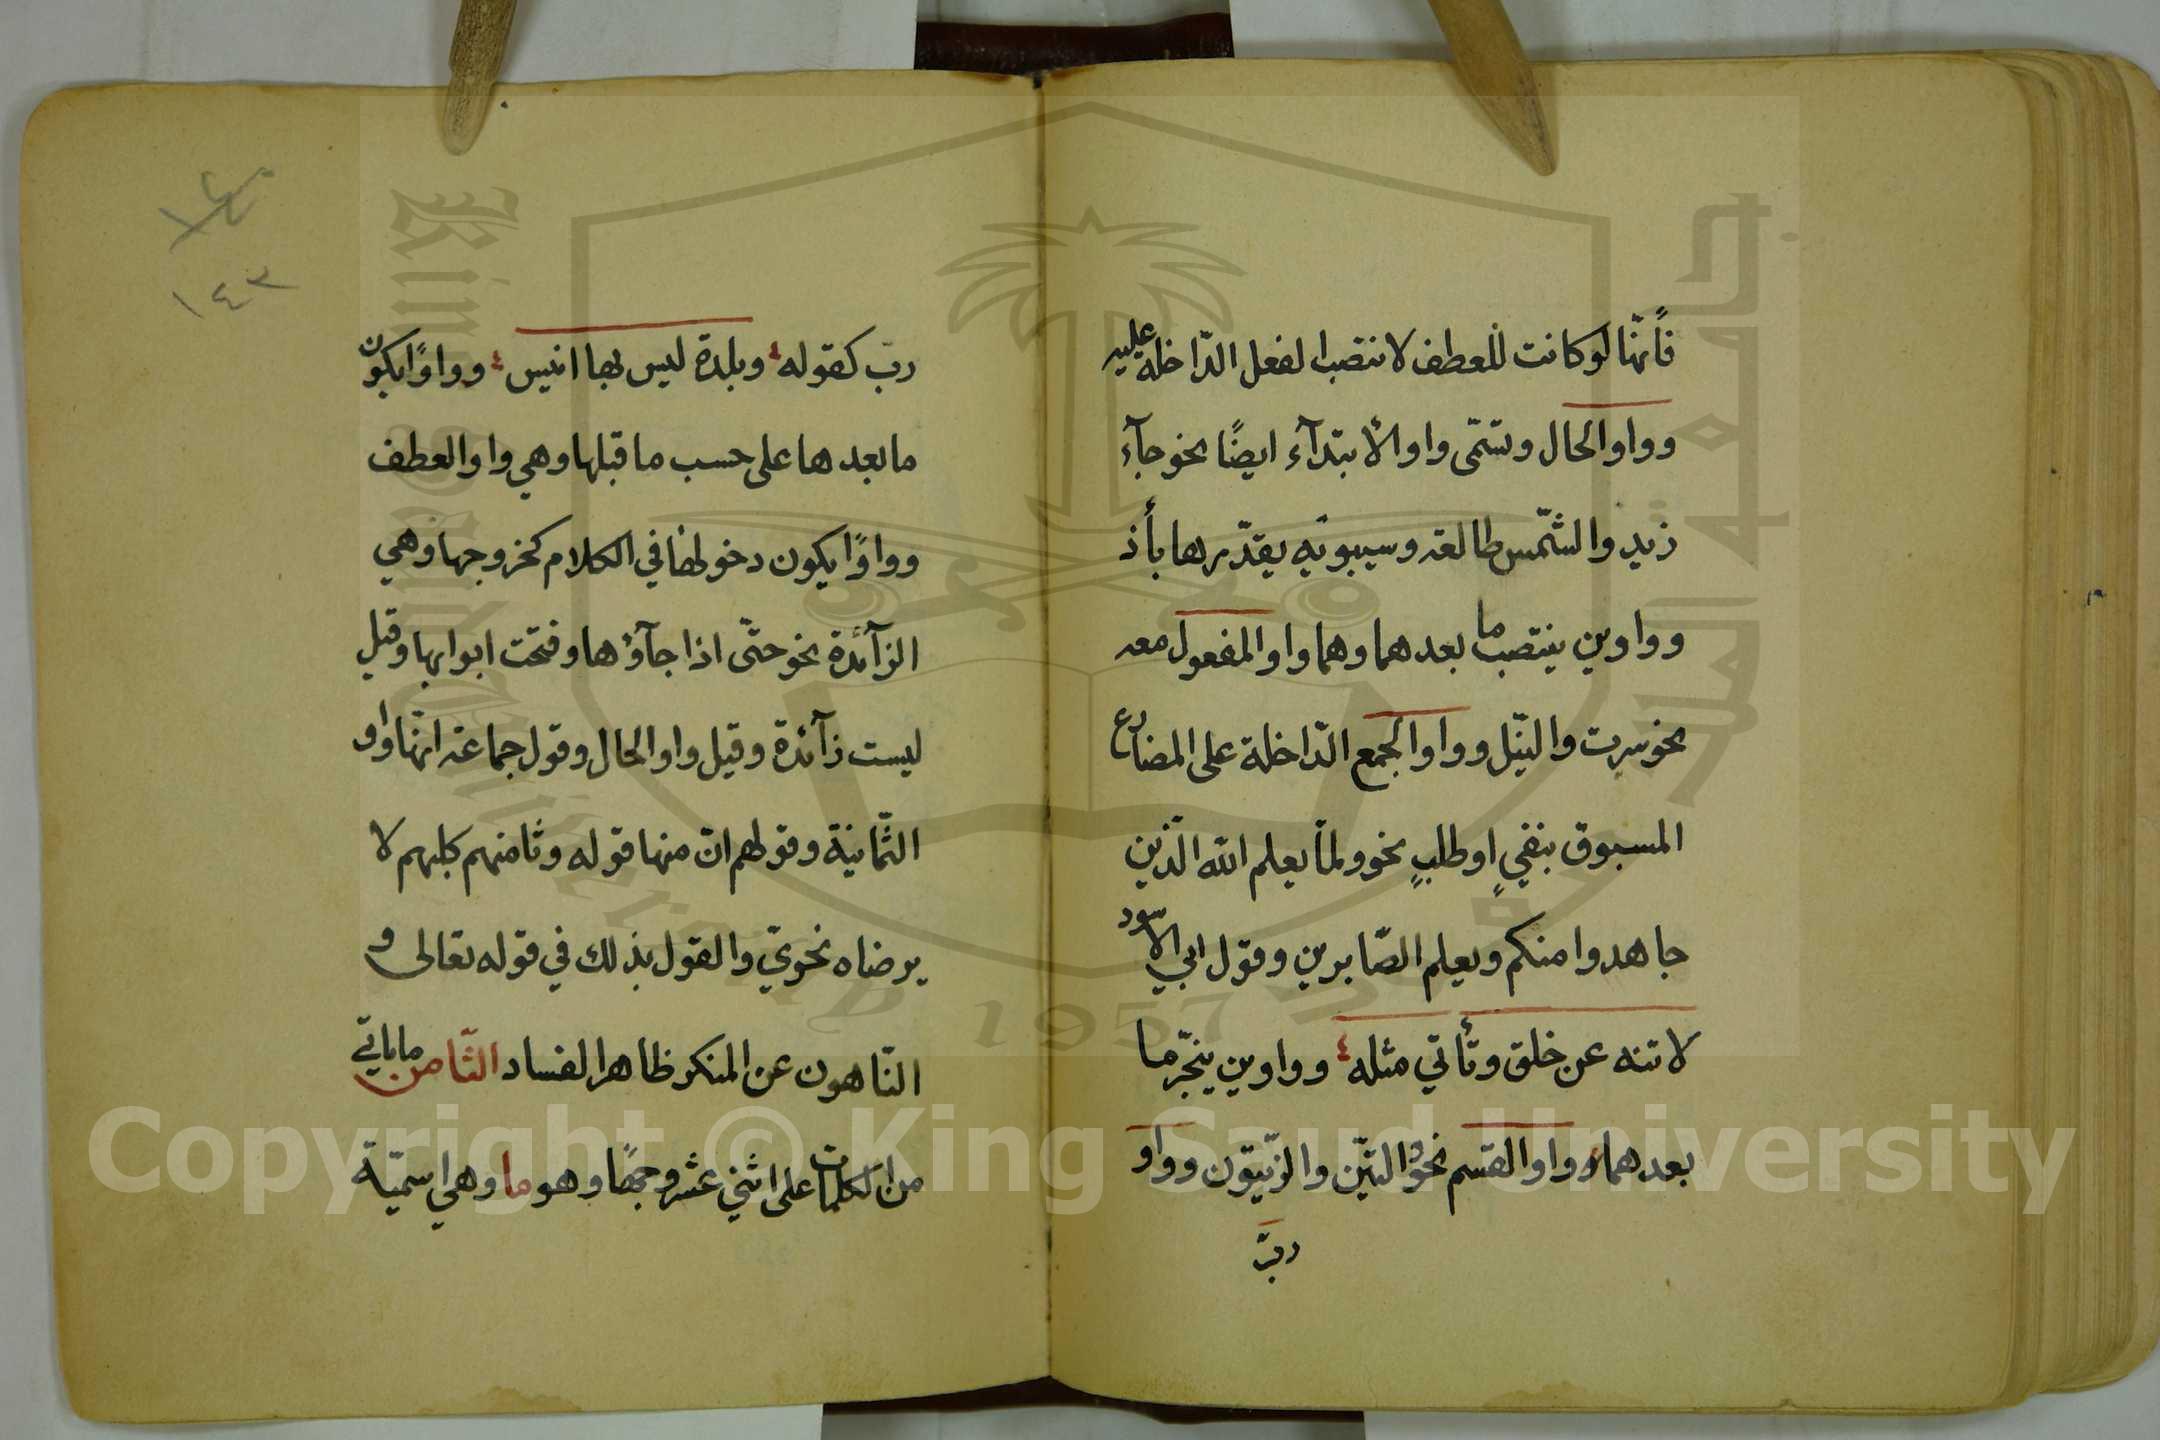 فأنّها لو كانت للعطف لانتصب الفعل الدّاخلة عليه
وواو الحال وتسمّى واو الأبتدآء ايضًا نحو جآء
زيد والشّمس طالعة وسيبويه يقدّرها بأذ
وواوين ينتصب ما بعدهما وهما واو المفعول معه
نحو سرت والنّيل وواو الجمع الدّاخلة على المضارع
المسبوق بنفيٍ او طلبٍ نحو ولمّا يعلم الله الّذين
جاهدوا منكم ويعلم الصّابرين وقول ابي الاسود
لا تنه عن خلق وتأتي مثله وواوين ينجّر ما
بعدهما وواو القسم نحو والتّين والزّيتون وواو
ربّ
١٤٣
ربّ كقوله وبلدة ليس بها انيس وواوًا يكون
ما بعدها على حسب ما قبلها وهي واو العطف
وواوًا يكون دخولها في الكلام كخروجها وهي
الزآئدة نحو حتّى اذا جآؤها وفتحت ابوابها وقيل
ليست زآئدة وقيل واو الحال وقول جماعة انّها واو
الثّمانية وقولهم انّ منها قوله وثامنهم كلبهم لا
يرضاه نحويّ والقول بذلك في قوله تعالى و
النّاهون عن المنكر ظاهر الفساد الثّامن ما يأتي
من الكلمات على اثني عشر وجهًا وهو ما وهي اسميّة
Copyright © King Saud University
جامعة الملك سعود
King Saud University
1957